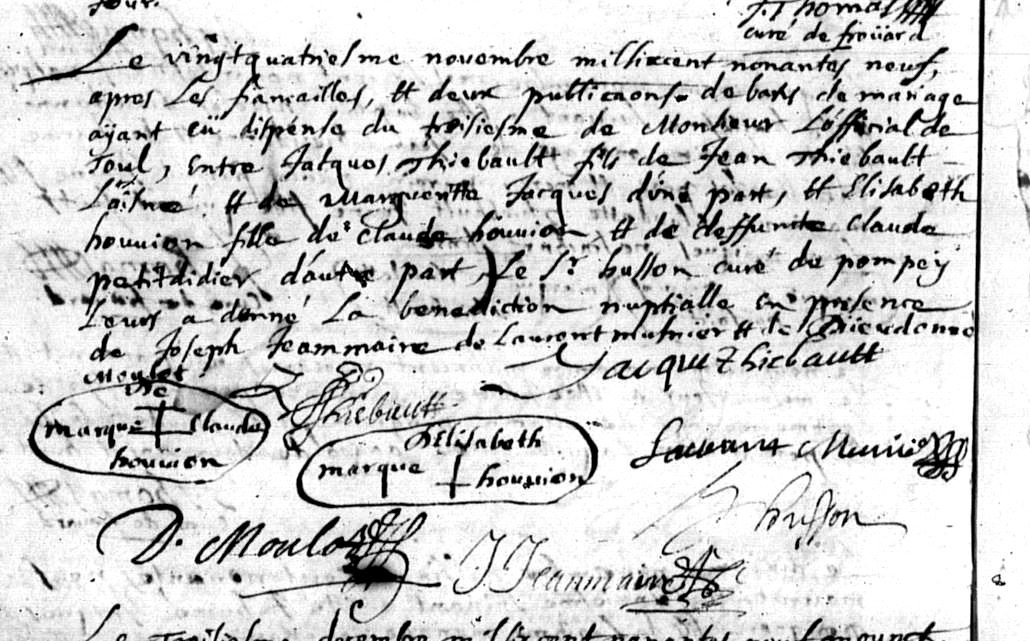 jour.
J. Thomas
curé de froüard
Le vingtquatriesme novembre mil sixcent nonantes neuf,
apres Les fiancailles, et deux publicaons de bans de mariage
ayant eü dispense du troisiesme de Monsieur L'official de
Toul, Entre Jacques Thiebault fils de Jean Thiebault
L'aisné et de Margueritte Jacques d'une part, et Elisabeth
houuion fille de Claude houuion et de deffuncte Claude
petitdidier d'autre part, Le Sr husson curé de pompey
Leurs a donné La benediction nuptialle En presence
de Joseph Jeammaire de Laurent musnier et de Dieudonné
Moulot
Jacque Thiebault
marque Claude
houuion
Thiebault
Elisabeth
marque houuion
Laurant Munier
husson
D. Moulot
J Jeanmaire
Le troisiesme decembre mil sixcent nonantes neuf